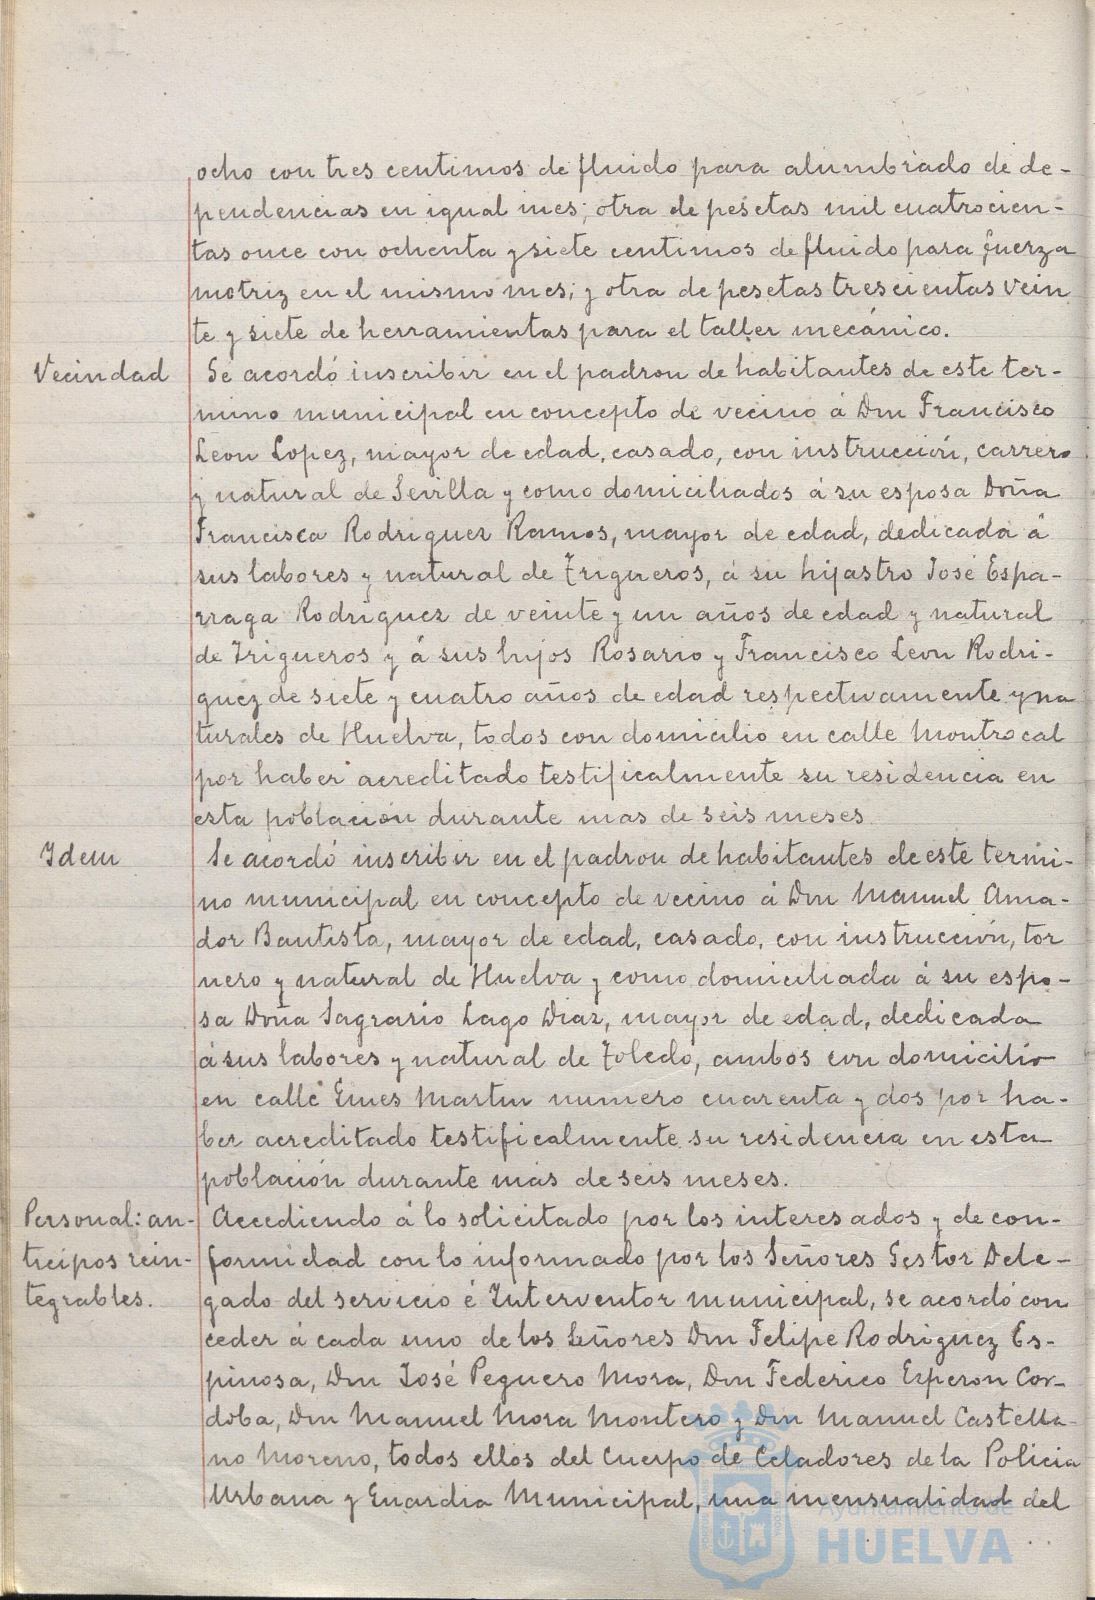 ocho con tres centimos de fluido para alumbrado de de-
pendencias en igual mes; otra de pesetas mil cuatrocien-
tas once con ochenta y siete centimos de fluido para fuerza
motriz en el mismo mes; y otra de pesetas trescientas vein
te y siete de herramientas para el taller mecánico.
Vecindad
Se acordó inscribir en el padron de habitantes de este ter-
mino municipal en concepto de vecino á Don Francisco
Leon Lopez, mayor de edad, casado, con instrucción, carrero
y natural de Sevilla y como domiciliados á su esposa Doña
Francisca Rodriguez Ramos, mayor de edad, dedicada á
sus labores y natural de Trigueros, á su hijastro José Espa-
rraga Rodriguez de veinte y un años de edad y natural
de Trigueros y á sus hijos Rosario y Francisco Leon Rodri-
guez de siete y cuatro años de edad respectivamente y na
turales de Huelva, todos con domicilio en calle Montrocal
por haber acreditado testificalmente su residencia en
esta población durante mas de seis meses.
Idem
Se acordó inscribir en el padron de habitantes de este termi-
no municipal en concepto de vecino á Don Manuel Ama-
dor Bautista, mayor de edad, casado, con instrucción, tor
nero y natural de Huelva y como domiciliada á su espo-
sa Doña Sagrario Lago Diaz, mayor de edad, dedicada
á sus labores y natural de Toledo, ambos con domicilio
en calle Gines Martin numero cuarenta y dos por ha-
ber acreditado testificalmente su residencia en esta
población durante mas de seis meses.
Personal: an-
ticipos rein-
tegrables.
Accediendo á lo solicitado por los interesados y de con-
formidad con lo informado por los Señores Gestor Dele-
gado del servicio é Interventor municipal, se acordó con
ceder á cada uno de los Señores Don Felipe Rodriguez Es-
pinosa, Don José Peguero Mora, Don Federico Esperon Cor-
doba, Don Manuel Mora Montero y Don Manuel Castella-
no Moreno, todos ellos del Cuerpo de Celadores de la Policia
Urbana y Guardia Municipal, una mensualidad del
Ayuntamiento de
HUELVA